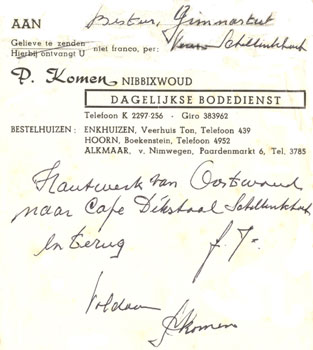 AAN Bestuur, Gimnastiek
Gelieve te zenden
Hierbij ontvangt U niet franco, per: Schellinkhout
P. Komen NIBBIXWOUD
DAGELIJKSE BODEDIENST
Telefoon K 2297-256 - Giro 383962
BESTELHUIZEN: ENKHUIZEN, Veerhuis Ton, Telefoon 439
HOORN, Boekenstein, Telefoon 4952
ALKMAAR, v. Nimwegen, Paardenmarkt 6, Tel. 3785
Houtwerk van Oostwoud
naar Cafe Dikstaal Schellinkhout
en terug f. 7-
Voldaan
P Komen